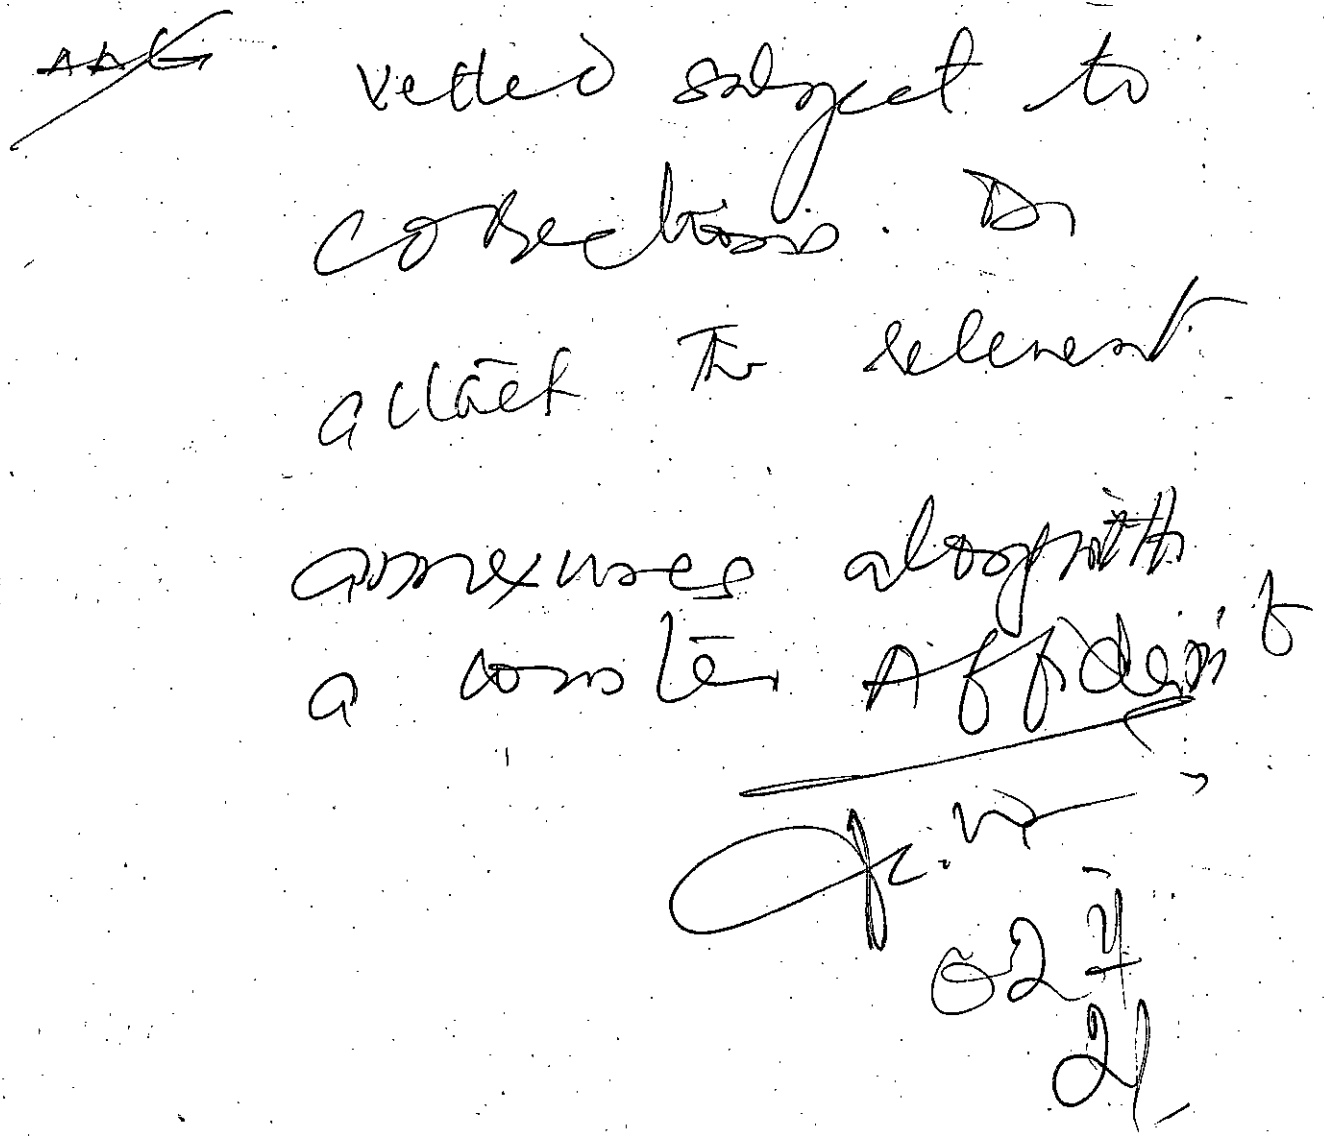 AAG vetted subject to
corrections. Do
attach the relevant
annexures alongwith
a counter Affidavit
02
21